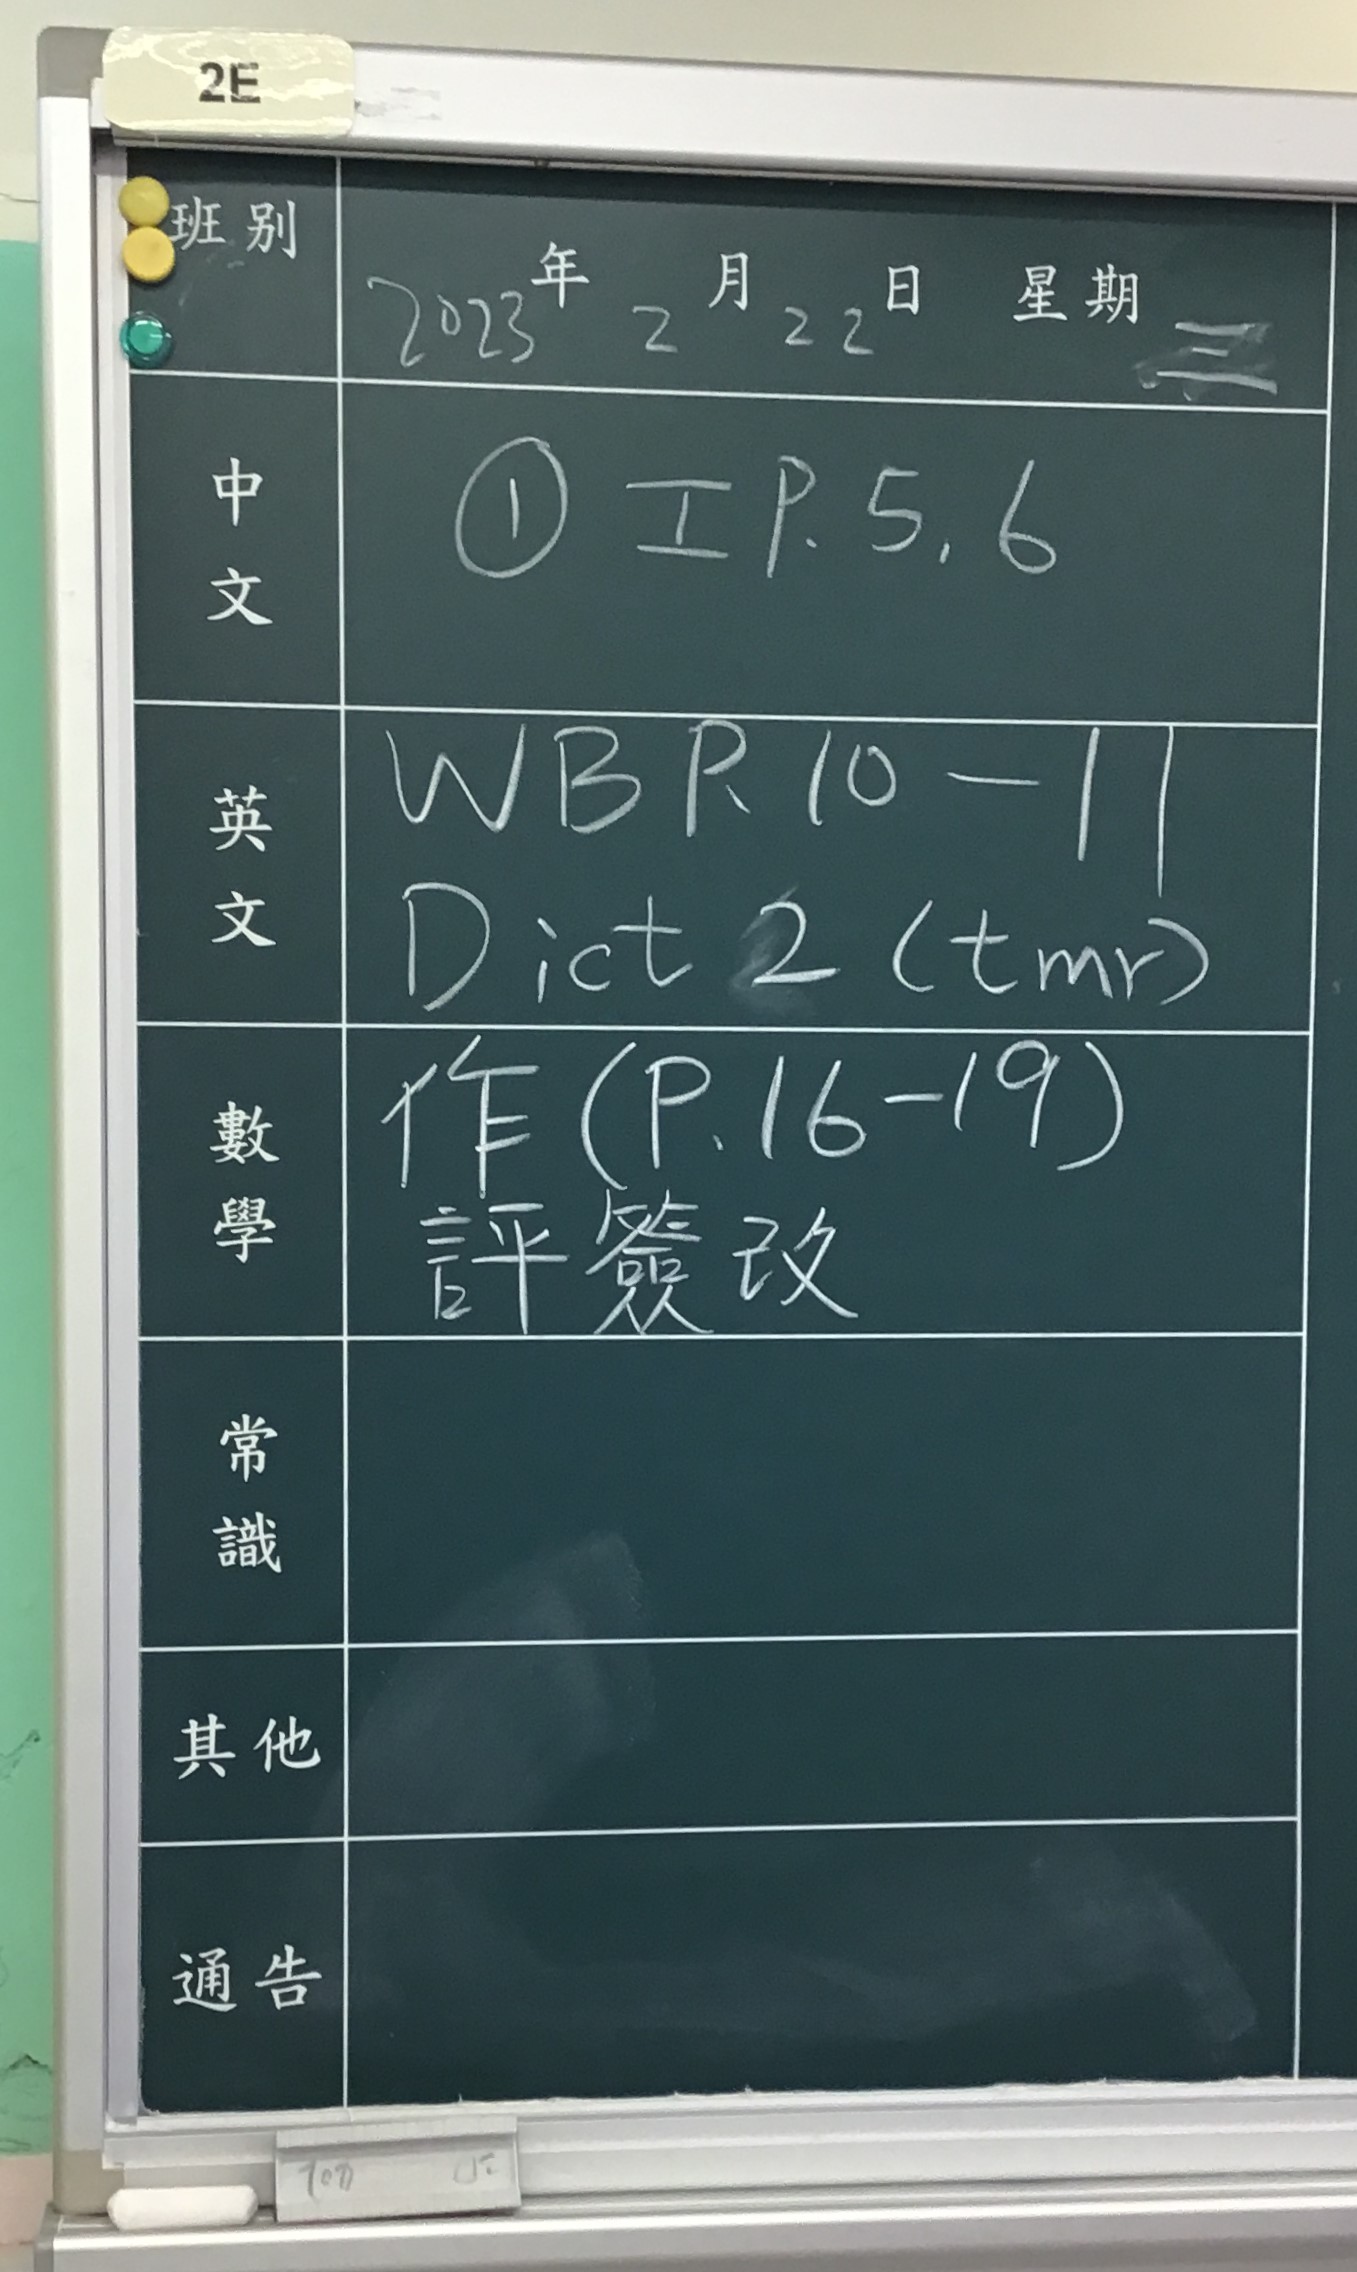 2E
班別
2023年 2月 22日 星期三
中文
① 工 P. 5, 6
英文
WB P. 10-11
Dict 2 (tmr)
數學
作 (P. 16-19)
評簽改
常識
其他
通告